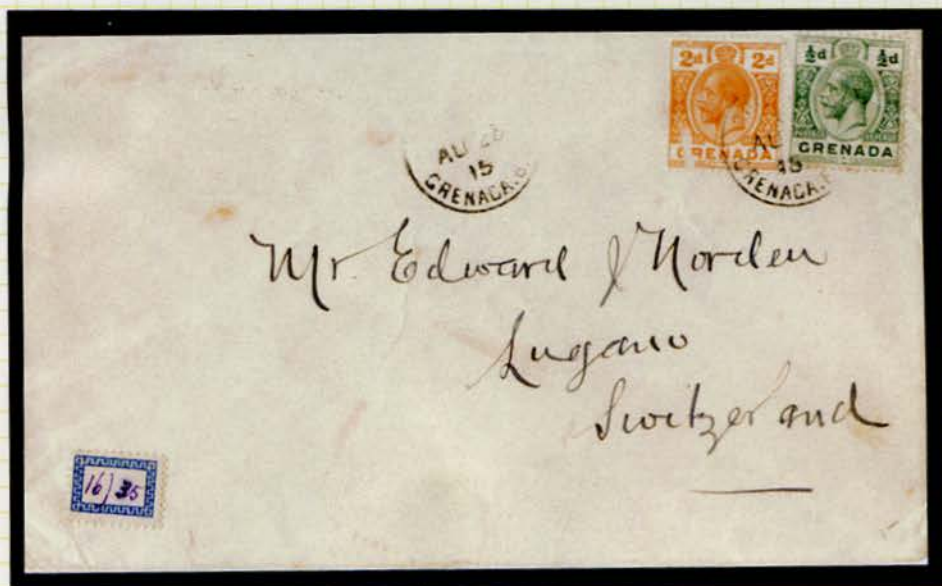 2d 2d
GRENADA
½d ½d
GRENADA
AU 28
15
GRENADA.B
AU
15
GRENADA.B
Mr. Edward J Norden
Lugano
Switzerland
16/35